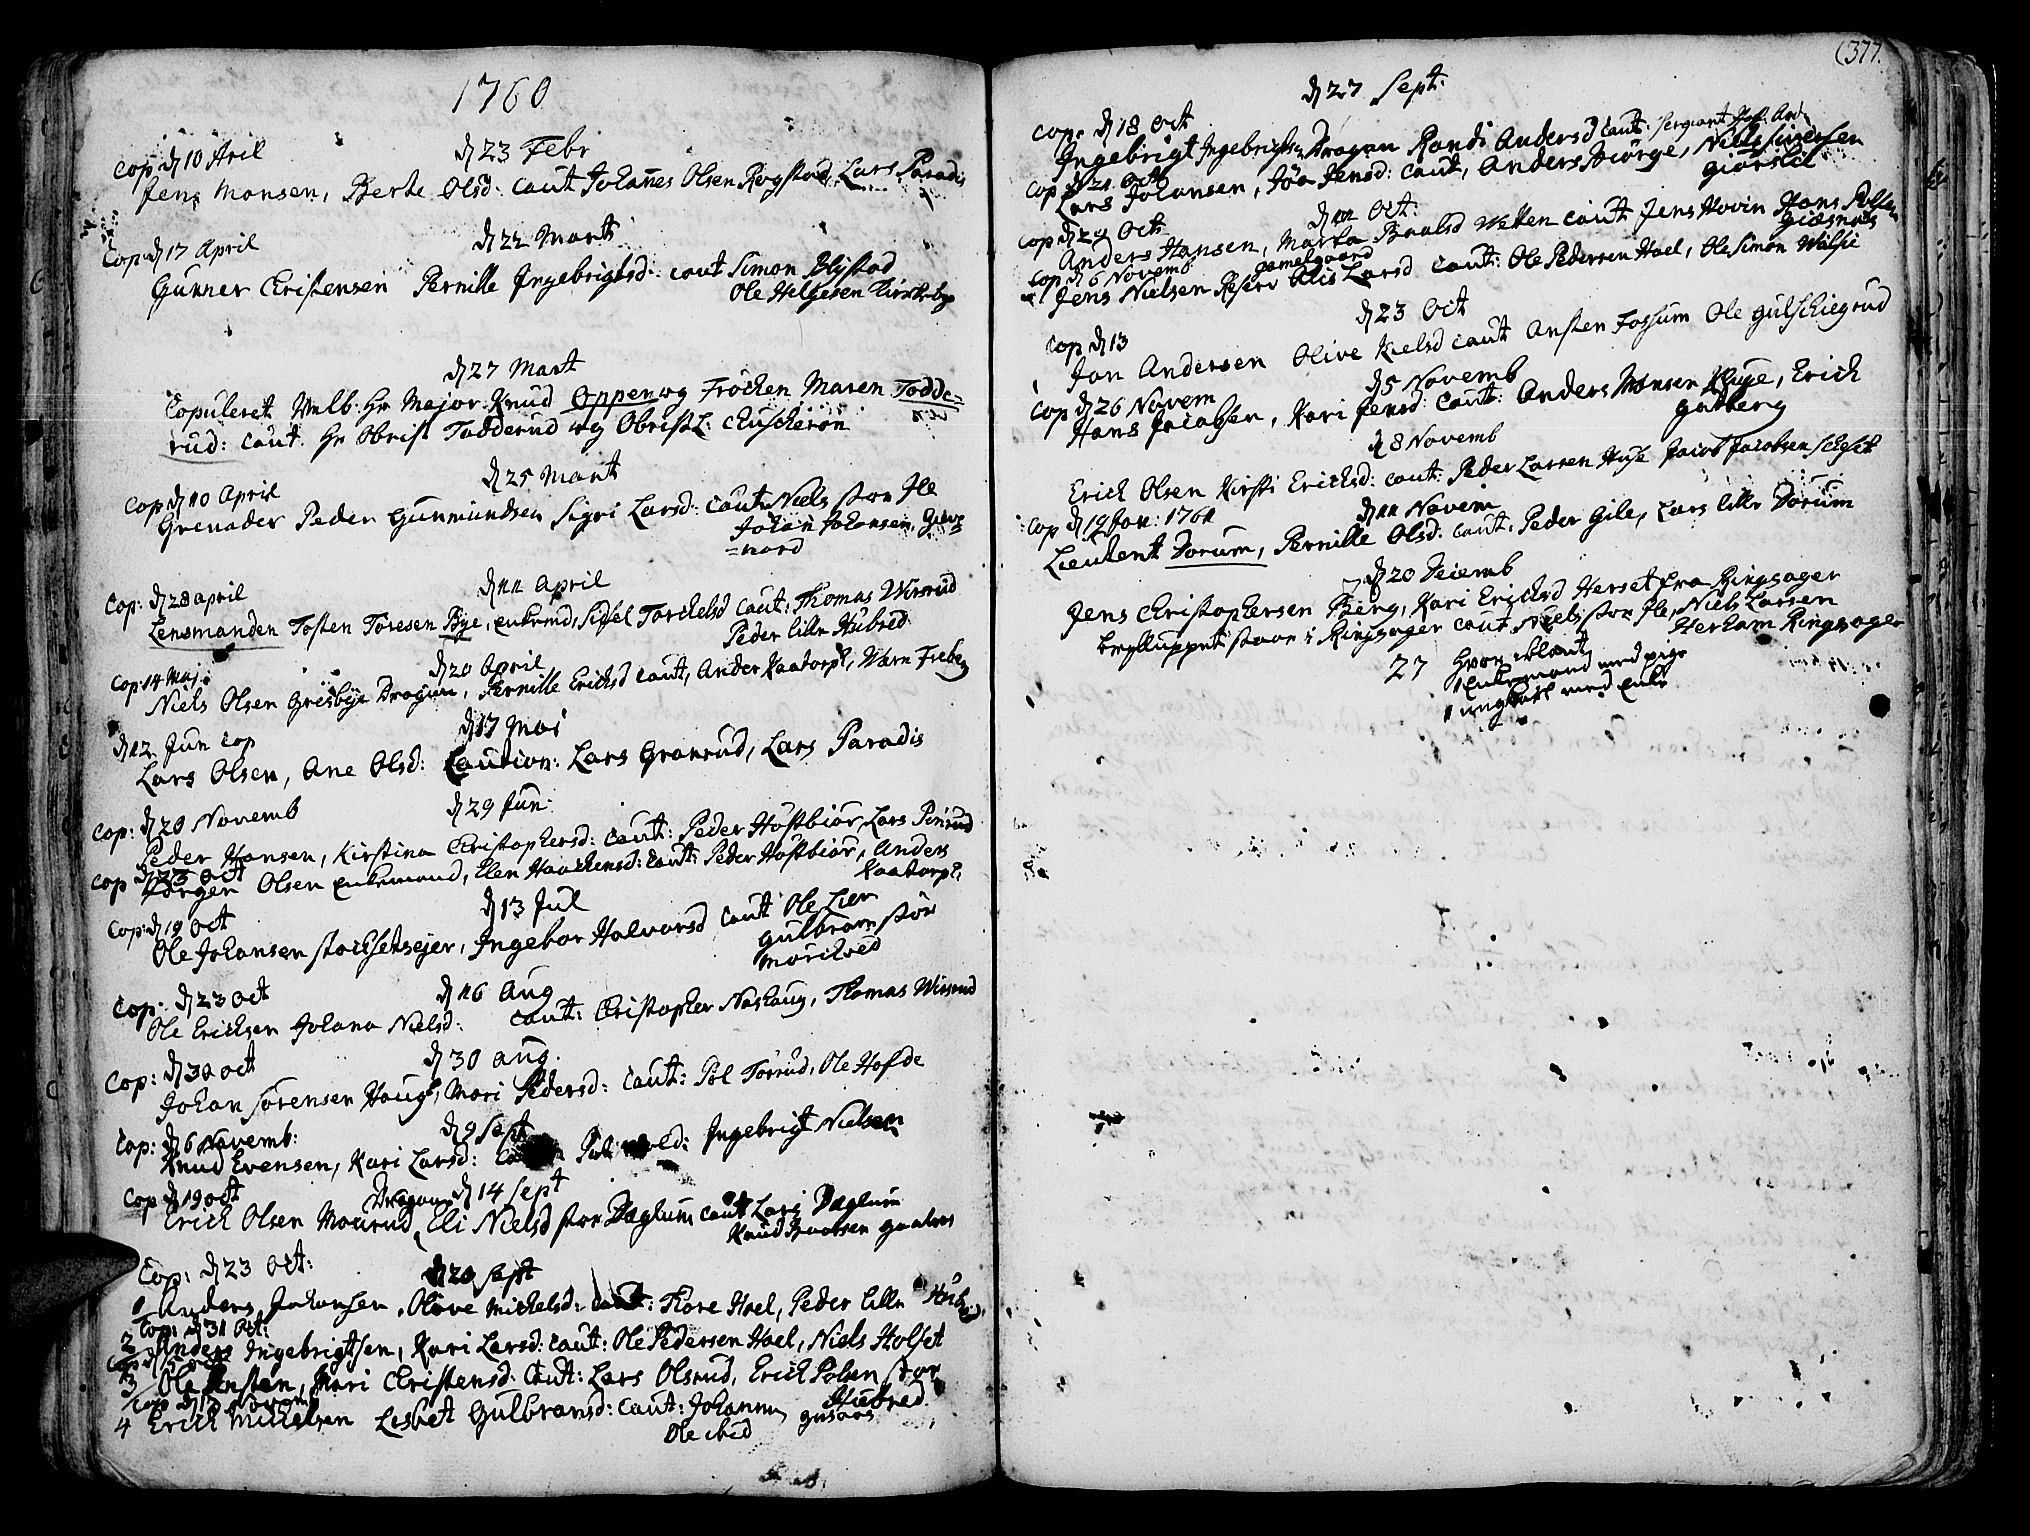 1760
d 23 Febr
Cop: d 10 Aril
Jens Monsen, Berte Olsd: Caut Johannes Olsen Rogstad, Lars Paradis
d 22 Marti
Cop: d 17 April
Gunner Christensen Pernille Ingebrigtsd: caut Simon Blystad
Ole Helgesen Kirkebye
d 27 Mart
Copuleret Velb: Hr Major Knud Oppen og Fröcken Maren Todde=
rud: caut: Hr Obrist Todderud og Obristl:
d 25 Mart
Cop d 10 April
Grenader Peder Gunmundsen Sigri Larsd: Caut: Niels stor Ile
Johan Johansen,
=nord
d 11 April
Cop: d 28 april
Lensmanden Tosten Toresen Bye, enkemd, Sidsel Torckelsd Caut: Thomas Wisrud
Peder lille Hubred
d 20 April
Cop: 14 Maj:
Niels Olsen Grisbye Dragun, Pernille Ericksd caut, Ander Kaatorp, Warn Freberg
d 17 Mai
d 12 Jun Cop
Lars Olsen, Ane Olsd: Caution: Lars Granrud, Lars Paradis
d 29 Jun:
Cop: d 20 Novemb
Peder Hansen, Kirstina Christophersd: Caut: Peder Hostbiör, Lars Pinrud
Cop d 23 Oct
Jörgen Olsen enkemand, Elen Haackensd: Caut: Peder Hostbiör, Anders
Kaatorp.
d 13 Jul
Cop: d 19 Oct
Ole Johansen stochsetsejer, Ingebor Halvorsd Caut Ole Lier
Gulbram stör
morichved
d 16 Aug
Cop: d 23 Oct
Ole Ericksen Johana Nielsd: Caut: Christopher Nashaug, Thomas Wisrud
d 30 aug.
Cop: d 30 Oct
Johan Sörensen Haug, Mari Pedersd: Caut: Pol Torrud, Ole Hofde
d 9 Sept
Cop: d 6 Novemb:
Knud Evensen, Kari Larsd: Ingebrigt Nielsen
d 14 Sept
Cop d 19 oct
Dragun
Erick Olsen Mourud, Eli Nielsd stor Dæglum caut Lars Dæglum
Knud Paalsen
d 20 Sept
Cop: d 23 Oct:
1 Anders Johansen, Olove Michelsd: Caut: Tore Hoel, Peder lille Hub
Cop: d 31 Oct:
2 Anders Ingebrigtsen, Kari Larsd: Caut: Ole Pedersen Hoel, Niels Holset
3 Ole Hansen, Mari Christensd: Caut: Lars Olsrud, Erick Polsen stor
Hubred
4 Erick Mickelsen Lisbet Gulbransd: Caut: Johannes
Ole ibid
(377.
d 27 Sept:
Cop: d 18 Oct
Ingebrigt Ingebrigtsen Dragun Randi Andersd Caut: Sergiant
Cop d 21 Oct
Lars Johansen, Jöa Jensd: Caut, Anders Biörge, Niels Siversen
Giörslie
d 11 Oct:
Cop d 29 Oct:
Anders Hansen, Marta Baalsd Wetten Caut Jens Hovin Hans Polsen
Cop d 6 Novemb Gamelgaard
Jens Nielsen Reserv Alis Larsd Caut: Ole Pedersen Hoel, Ole Simon
d 23 Oct
Cop d 13
Jon Andersen Olive Kielsd Caut Ansten Fossum Ole Gulschiegrud
d 5 Novemb
Cop d 26 Novem
Hans Jacobsen, Kari Jensd: Caut: Anders Monsen, Erick
Gutberg
d 8 Novemb
Erick Olsen Kirsti Ericksd: Caut: Peder Larsen Huse Jacob Jacobsen
d 11 Novem
Cop d 19 Jan: 1761
Lieutent Dorum, Pernille Olsd: Caut: Peder Gile, Lars lille Dorum
d 20 Decemb
Jens Christophersen Berg, Kari Ericksd Herset fra Ringsager
brylluppet staar i Ringsager Caut Niels stor Ile, Niels Larsen
Herkam Ringsager
27 Hvor iblant
1 Enkemand med pige
1 ungkarl med Enke